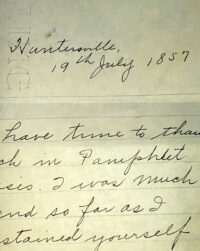 Huntersville,
19th July 1857
have time to than
ck in Pamphlet
ses. I was much
end so far as I
stained yourself